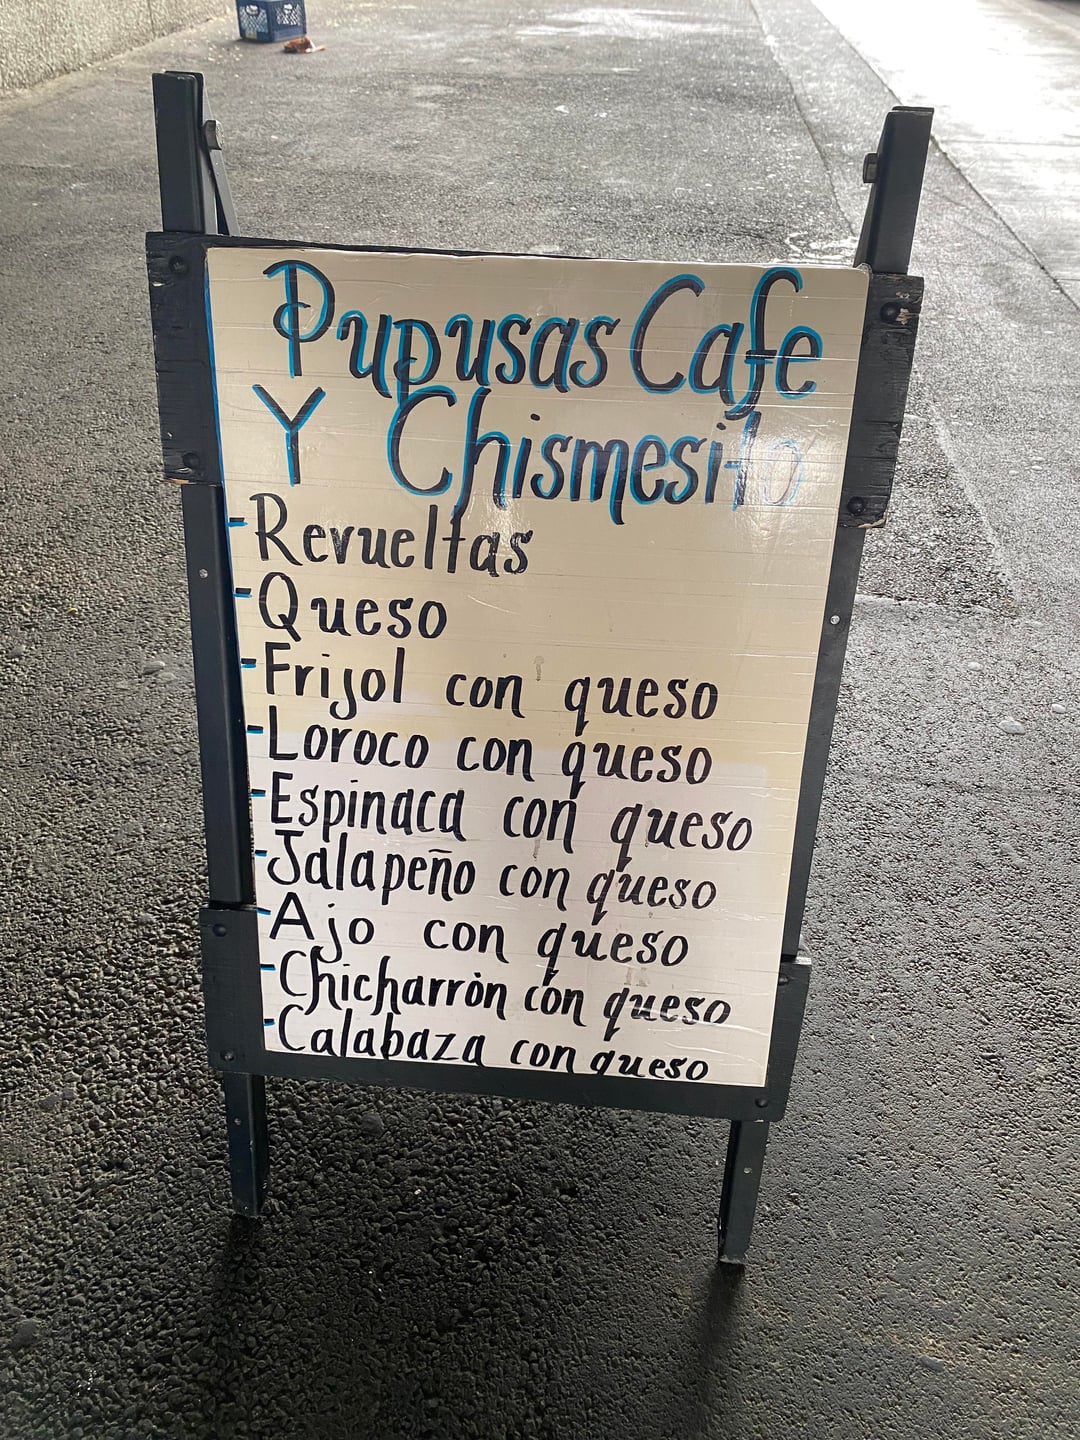 Pupusas Cafe
Y Chismesito
-Revueltas
-Queso
-Frijol con queso
-Loroco con queso
-Espinaca con queso
-Jalapeño con queso
-Ajo con queso
-Chicharròn con queso
-Calabaza con queso